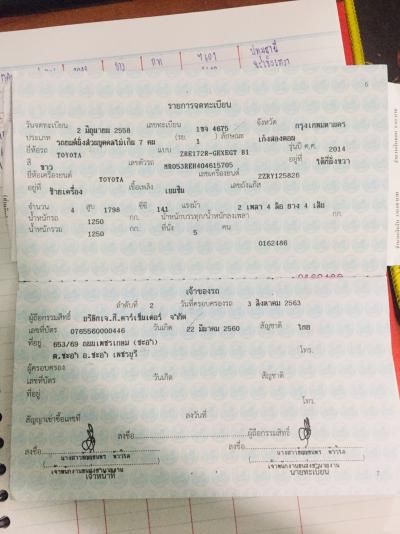 6
รายการจดทะเบียน
วันจดทะเบียน 2 มิถุนายน 2558 เลขทะเบียน 1ขจ 4675 จังหวัด กรุงเทพมหานคร
ประเภท รถยนต์นั่งส่วนบุคคลไม่เกิน 7 คน (รย. 1) ลักษณะ เก๋งสองตอน
ยี่ห้อรถ TOYOTA แบบ ZRE172R-GEXEGT B1 รุ่นปี ค.ศ. 2014
สี ขาว เลขตัวรถ MR053REH404615705 อยู่ที่ ใต้ที่นั่งขวา
ยี่ห้อเครื่องยนต์ TOYOTA เลขเครื่องยนต์ 2ZRY125826
อยู่ที่ ซ้ายเครื่อง เชื้อเพลิง เบนซิน เลขถังแก๊ส
จำนวน 4 สูบ 1798 ซีซี 141 แรงม้า 2 เพลา 4 ล้อ ยาง 4 เส้น
น้ำหนักรถ 1250 กก. น้ำหนักบรรทุก/น้ำหนักลงเพลา กก.
น้ำหนักรวม 1250 กก. ที่นั่ง 5 คน
0162486
เจ้าของรถ
ลำดับที่ 2 วันที่ครอบครองรถ 3 สิงหาคม 2563
ผู้ถือกรรมสิทธิ์ บริษัทเจ.ที.คาร์เซ็นเตอร์ จำกัด
เลขที่บัตร 0765560000446 วันเกิด 22 มีนาคม 2560 สัญชาติ ไทย
ที่อยู่ 653/69 ถนนเพชรเกษม (ชะอำ)
ต.ชะอำ อ.ชะอำ เพชรบุรี โทร.
ผู้ครอบครอง
เลขที่บัตร วันเกิด สัญชาติ
ที่อยู่
โทร.
สัญญาเช่าซื้อเลขที่ ลงวันที่
ลงชื่อ ผู้ถือกรรมสิทธิ์
ลงชื่อ ลงชื่อ
เจ้าพนักงานขนส่งชำนาญงาน เจ้าพนักงานขนส่งชำนาญงาน
เจ้าหน้าที่ นายทะเบียน
7